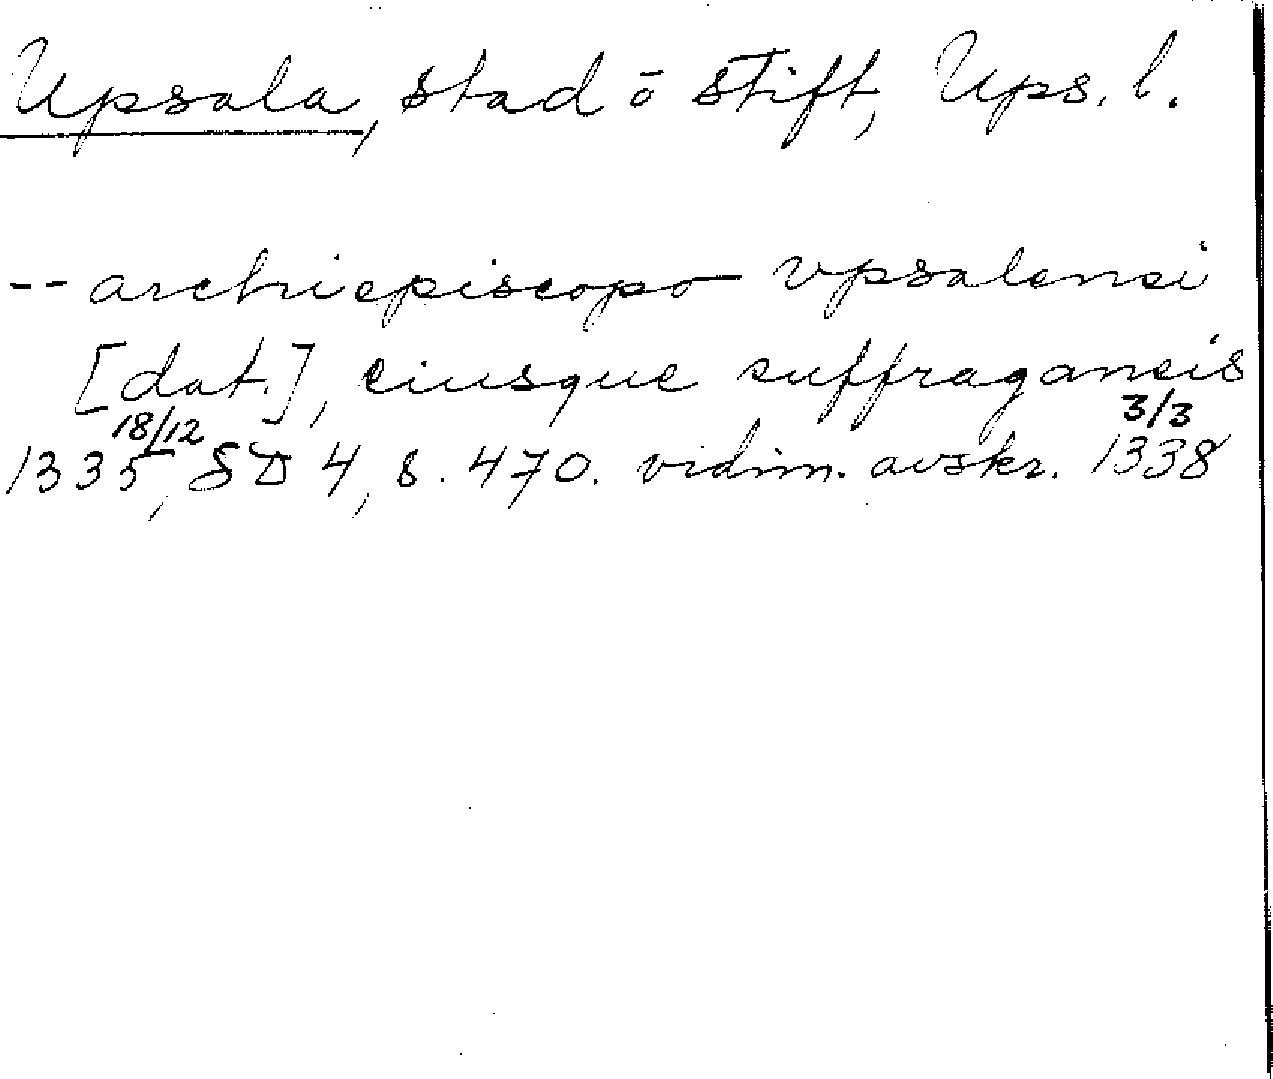 Upsala, stad ō stift, Ups. l.
-- archiepiscopo vpsalensi
[dat.], eiusque suffraganeis
18/12 3/3
1335, SD 4, s. 470. vidim. avskr. 1338